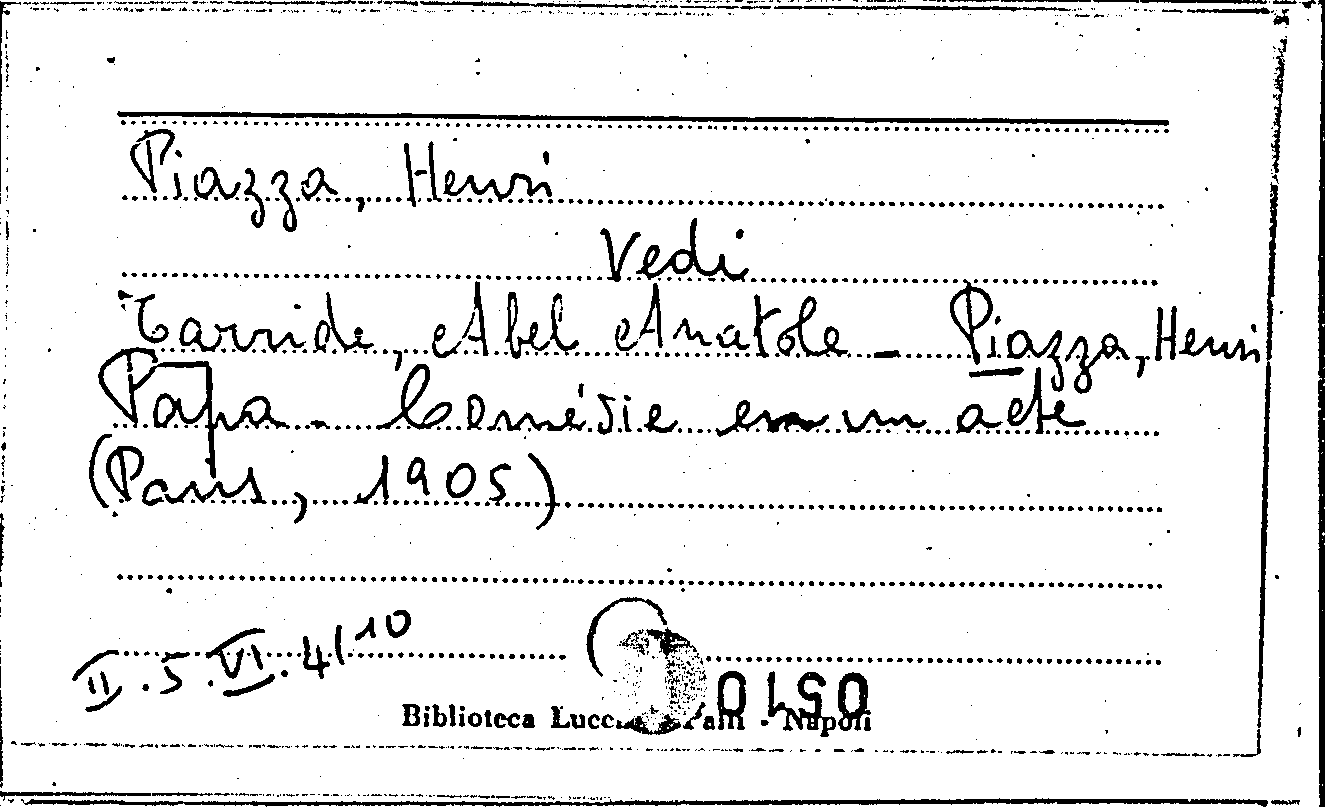 Piazza, Henri
Vedi
Tarride, Abel Anatole - Piazza, Henri
Papa - Comédie en un acte
(Paris, 1905)
II.5.VI.4/10
0510
Biblioteca Palli - Napoli